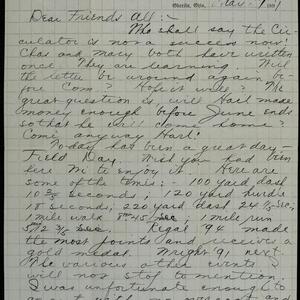 Oberlin, Ohio, May 9, 1891
Dear Friends All:-
Who shall say the Cir-
culator is not a success now!
Chas and Mary both have written
once. They are learning. Will
the letter be around again be-
fore Com? Hope it will? The
great question is will Hart made
money enough before June ends
so that he will come home?
Come anyway Hart!
Today has been a great day—
Field Day. Wish you had been
here Mc to enjoy it. Here are
some of the times: 100 yard dash
10 2/5 seconds; 120 yard hurdle
18 seconds; 220 yard dash 24 1/2 sec,
1 mile walk 8m 45 sec; 1 mile run
5/12 2/5 sec. Regal '94 made
the most points and receives a
gold medal. Wright 91 next.
The various other events I
will not stop to mention.
I was unfortunate enough to